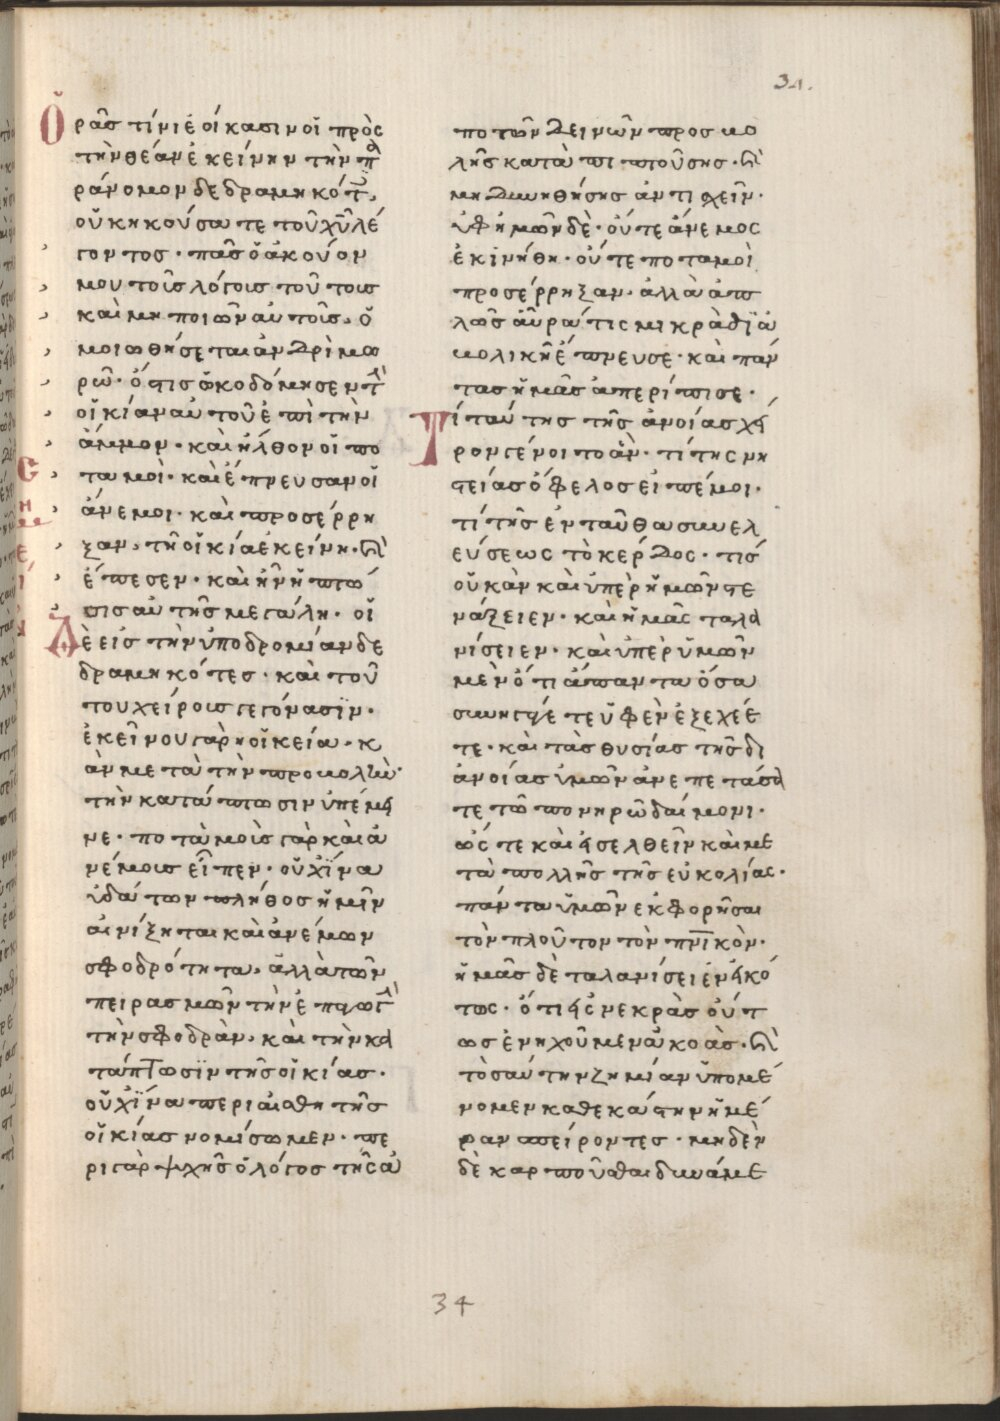 34.
Ὁρᾶς τίνι ἐοίκασιν οἱ πρὸς
τὴν θέαν ἐκείνην τὴν πα
ράνομον δεδραμηκότ(ες),
οὐκ ἠκούσατε τοῦ χῦ λέ
γοντος · πᾶς ὁ ἀκούων
μου τοὺς λόγους τούτους
καὶ μὴ ποιῶν αὐτοὺς, ὁ
μοιωθήσεται ἀνδρὶ μω
ρῶ · ὅστις ὠκοδόμησεν τ(ὴν)
οἰκίαν αὐτοῦ ἐπὶ τὴν
ἄμμον · καὶ ἦλθον οἱ πο
ταμοὶ · καὶ ἔπνευσαν οἱ
ἄνεμοι · καὶ προσέρρη
ξαν, τῆ οἰκία ἐκείνη · καὶ
ἔπεσεν · καὶ ἦν ἡ πτῶ
σις αὐτῆς μεγάλη · οἱ
Δὲ εἰς τὴν ὑποδρομίαν δε
δραμηκότες · καὶ τού
του χείροις γεγόνασϊν ·
ἐκείνου γὰρ ἡ οἰκεία · κ
ἂν μετὰ τὴν προσβολὴν
τὴν κατάπτωσιν ὑπέμει
νε · ποταμοὺς γὰρ καὶ ἀ
νέμους εἶπεν · οὐχ ἵνα
ὑδάτων πλῆθος ἡμῖν
αἰνίξηται καὶ ἀνέμων
σφοδρότητα, ἀλλὰ τῶν
πειρασμῶν τὴν ἐπαγωγ(ὴν)
τὴν σφοδρὰν, καὶ τὴν κα
τάπτωσϊν τῆς οἰκίας ·
οὐχ ἵνα περὶ αἰσθητῆς
οἰκίας νομίσωμεν · πε
ρὶ γὰρ ψυχῆς ὁ λόγος τῆς ὑ
πὸ τῶν δεινῶν προσβο
λῆς καταπιπτούσης · καὶ
μὴ δυνηθήσης ἀντισχεῖν ·
ὑφ ἡμῶν δὲ · οὔτε ἄνεμος
ἐκινήθη · οὔτε ποταμοὶ
προσέρρηξαν · ἀλλὰ ἁπ
λῶς αὔρά τις μικρὰ δϊα
βολικὴ ἔπνευσε · καὶ πάν
τας ἡμᾶς ἀπερίπισε ·
Τί ταύτης τῆς ἀνοίας χεῖ
ρον γένοιτο ἄν · τί τῆς νη
στείας ὄφελος εἰπέ μοι ·
τί τῆς ἐνταῦθα συνελ
εύσεως τὸ κέρδος · τίς
οὐκ ἂν καὶ ὑπὲρ ἡμῶν στε
νάξειεν · καὶ ἡμᾶς ταλα
νίσειεν · καὶ ὑπὲρ ὑμῶν
μὲν ὅτι ἅπαντα ὅσα
συνηγάγετε ὑφ ἓν ἐξεχέε
τε · καὶ τὰς θυσίας τῆς δι
ανοίας ὑμῶν ἀνεπετάσα
τε τῶ πονηρῶ δαίμονι ·
ὥστε καὶ εἰσελθεῖν καὶ με
τὰ πολλῆς τῆς εὐκολίας ·
πάντα ὑμῶν ἐκφορῆσαι
τὸν πλοῦτον τὸν πνικὸν ·
ἡμᾶς δὲ ταλανίσειεν εἰκό
τως · ὅτι εἰς νεκρὰς οὕτ
ως ἐνηχοῦμεν ἀκοὰς · καὶ
τοσαύτην ζημίαν ὑπομέ
νομεν καθεκάστην ἡμέ
ραν σπείροντες · μηδὲν
δὲ καρποῦσθαι δυνάμε
34